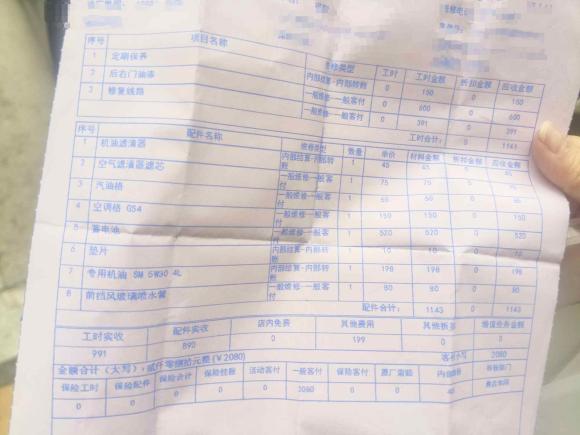 序号 项目名称 维修类型 工时 工时金额 折扣金额 应收金额
1 定期保养 内部结算-内部转账 0 150 0 150
2 后右门油漆 一般维修-一般客付 0 600 0 600
3 修复线路 一般维修-一般客付 0 391 0 391
工时合计: 0 1141
序号 配件名称 维修类型 数量 单价 材料金额 折扣金额 应收金额
1 机油滤清器 内部结算-内部转账 1 45 45 0 45
2 空气滤清器滤芯 一般维修-一般客付 1 75 75 0 75
3 汽油格 一般维修-一般客付 1 0
4 空调格 G54 一般维修-一般客付 1 150 150 0 150
5 蓄电池 一般维修-一般客付 1 520 520 0 520
6 垫片 内部结算-内部转账 1 10 10 0 10
7 专用机油 SM 5W30 4L 内部结算-内部转账 1 198 198 0 198
8 前挡风玻璃喷水管 一般维修-一般客付 1 80 80 0 80
配件合计: 1143 0 1143
工时实收 配件实收 店内免费 其他费用 其他折扣 增值业务金额
991 890 0 199 0 0
金额合计(大写): 贰仟零捌拾元整(¥2080) 客付小写 2080
保险工时 保险配件 保险合计 保险挂账 活动客付 一般客付 保险客付 原厂索赔
0 0 0 0 0 2080 0 0